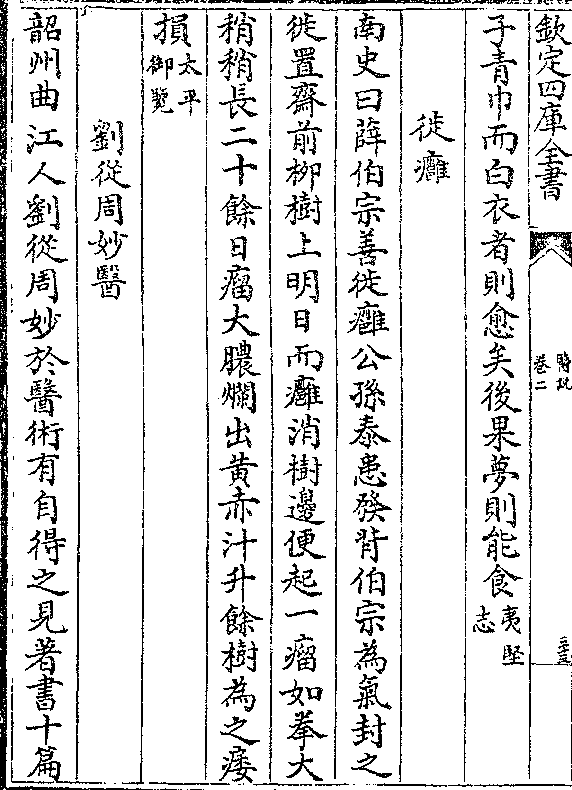 欽定四庫全書
醫說
卷二
子青巾而白衣者則愈矣後果夢則能食夷堅志
徙癰
南史曰薛伯宗善徙癰公孫泰患發背伯宗為氣封之
徙置齋前柳樹上明日而癰消樹邊便起一瘤如拳大
稍稍長二十餘日瘤大膿爛出黄赤汁升餘樹為之痿
損太平御覽
劉從周妙醫
韶州曲江人劉從周妙於醫術有自得之見著書十篇